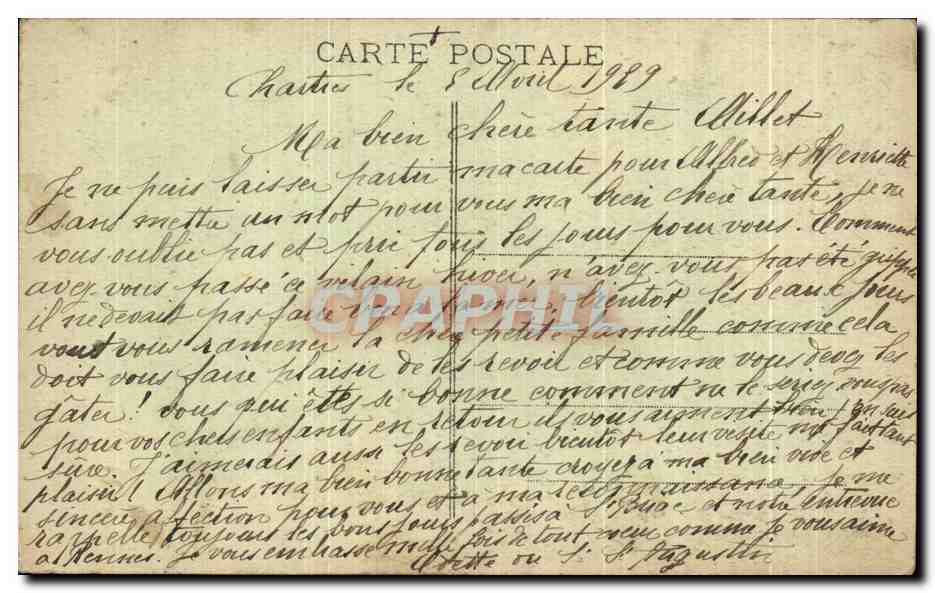 CARTE POSTALE
Chartres le 8 Avril 1929
Ma bien chère tante Millet
Je ne puis laisser partir ma carte pour Alfred et Henriette
sans mettre un mot pour vous ma bien chère tante, je ne
vous oublie pas et prie tous les jours pour vous. Comment
avez-vous passé ce vilain hiver, n'avez-vous pas été grippée
il ne devait pas faire bientôt les beaux jours
vont vous ramener la chère petite famille comme cela
doit vous faire plaisir de les revoir et comme vous devez les
gâter! vous qui êtes si bonne comment ne le seriez vous pas
pour vos chers enfants en retour ils vous aiment bien j'en suis
sure. J'aimerais aussi les revoir bientôt leur visite me fait tant
plaisir! Allons ma bien bonne tante croyez à ma bien vive et
sincère affection pour vous et à ma reconnaissance, je me
rappelle toujours les bons jours passés à et notre entrevue
à Rennes. Je vous embrasse mille fois de tout coeur comme je vous aime
Odette ou Sr St Augustin
CPAPHIL